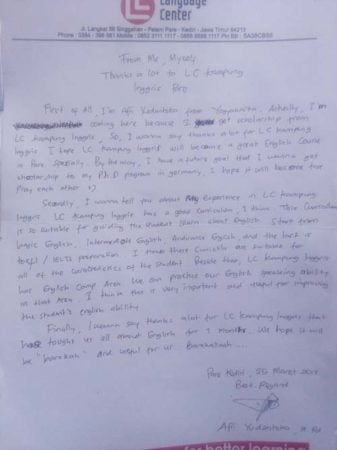 Language
Center
Jl. Langkat 88 Singgahan - Pelem Pare - Kediri - Jawa Timur 64213
Phone : 0354 - 398 561 Mobile :
From Me, Myself
Thanks a lot to LC Kampung
Inggris Pare
First of all, I'm Afi Yudantoko from Yogyakarta. Actually, I'm
coming here because I get scholarship from
LC Kampung Inggris. So, I wanna say thanks a lot for LC Kampung
Inggris. I hope LC Kampung Inggris will become a great English Course
in Pare specially. By the way, I have a future goal that I wanna get
scholarship to my Ph.D program in germany, I hope it will become true
Pray each other :)
Secondly, I wanna tell you about my experience in LC Kampung
Inggris. LC Kampung Inggris has a good Curriculum, I think. This Curriculum
is so suitable for guiding the student learn about English. Start from
basic English, Intermediate English and the last is
toefl / IELTS preparation. I think these Curricula are suitable for
all of the of the student. Beside that, LC Kampung Inggris
has English Camp Area. We can practice our English speaking ability
in that Area. I think this is very important and useful for improving
the student's english ability.
Finally, I wanna say thanks a lot for LC Kampung Inggris that
have taught us all about English for 1 month. We hope it will
be "barokah" and useful for us.
Pare Kediri, 25 Maret
Best Regard
Afi Yudantoko,
for better learning